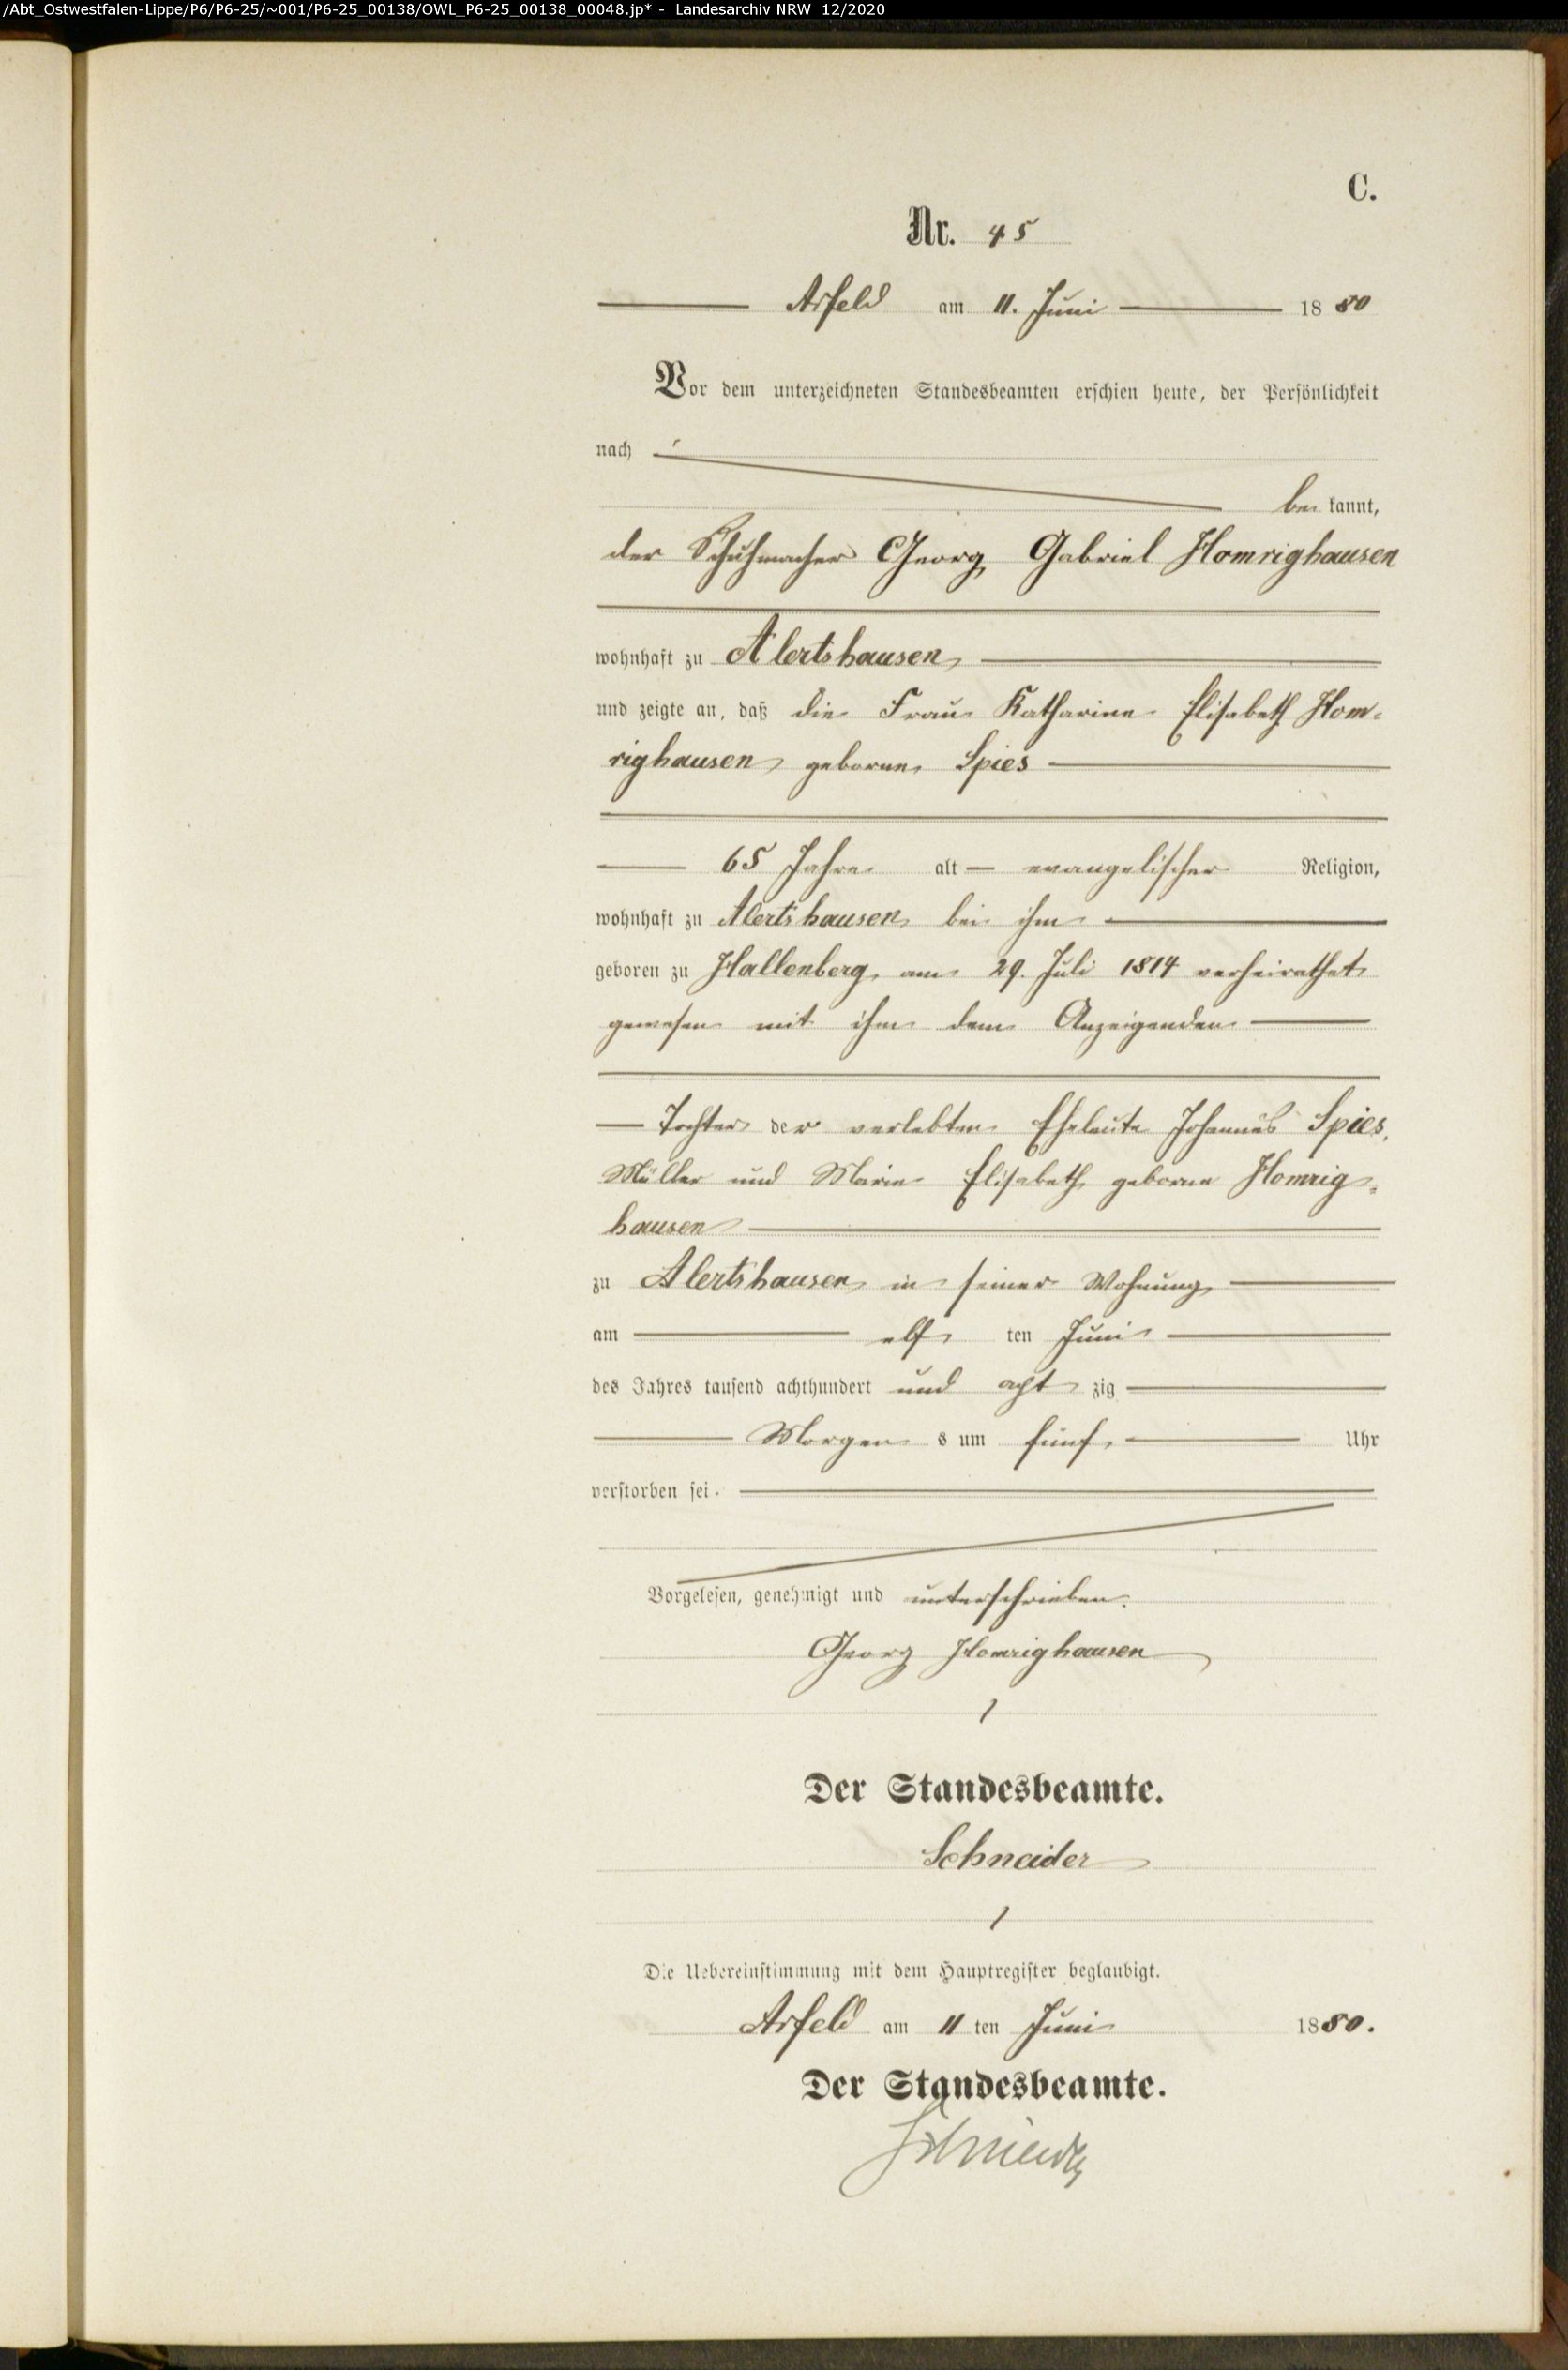 /Abt_Ostwestfalen-Lippe/P6/P6-25/~001/P6-25_00138/OWL_P6-25_00138_00048.jp* - Landesarchiv NRW 12/2020
C.
Nr. 45
Arfeld am 11. Juni 1880
Vor dem unterzeichneten Standesbeamten erschien heute, der Persönlichkeit
nach
bekannt,
der Schuhmacher Georg Gabriel Homrighausen
wohnhaft zu Alertshausen
und zeigte an, daß die Frau Katharine Elisabeth Hom-
righausen geborne Spies
65 Jahre alt evangelischer Religion,
wohnhaft zu Alertshausen bei ihm
geboren zu Hallenberg am 29. Juli 1814 verheirathet
gewesen mit ihm dem Anzeigenden
Tochter der verlebten Eheleute Johannes Spies,
Müller und Marie Elisabeth geborne Homrig-
hausen
zu Alertshausen in seiner Wohnung
am elf ten Juni
des Jahres tausend achthundert und acht zig
Morgen s um fünf Uhr
verstorben sei.
Vorgelesen, genehmigt und unterschrieben.
Georg Homrighausen
Der Standesbeamte.
Schneider
Die Uebereinstimmung mit dem Hauptregister beglaubigt.
Arfeld am 11 ten Juni 1880.
Der Standesbeamte.
Schneider